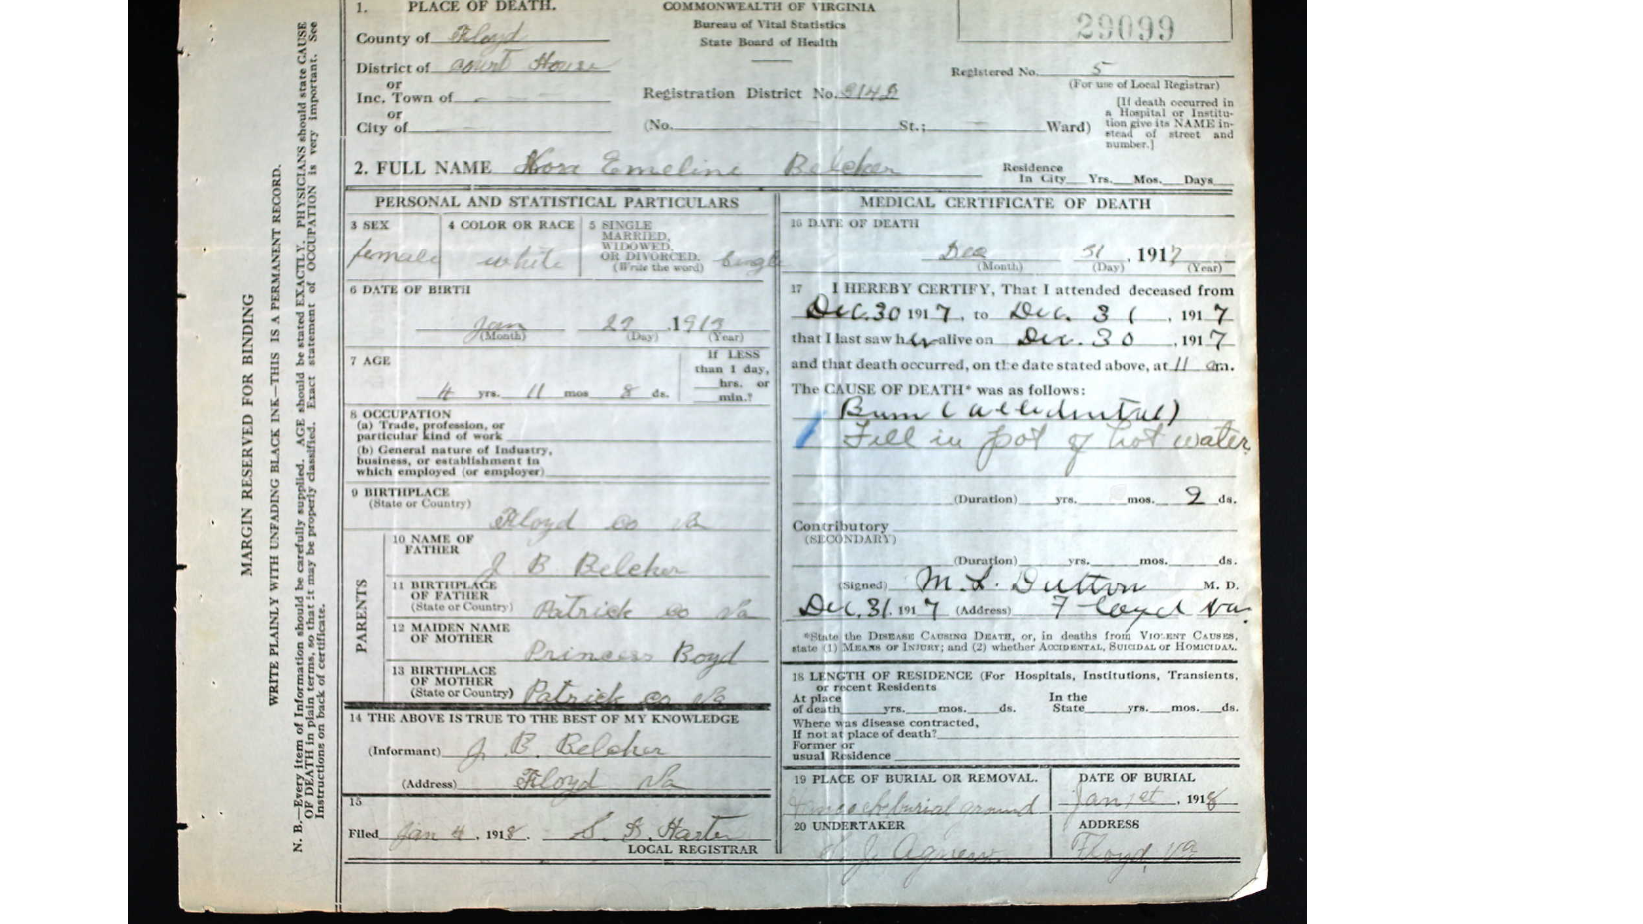 1. PLACE OF DEATH.
County of Floyd
District of Court House
or
Inc. Town of
or
City of
COMMONWEALTH OF VIRGINIA
Bureau of Vital Statistics
State Board of Health
Registration District No. 314B
(No. St.; Ward)
29099
Registered No. 5
(For use of Local Registrar)
[If death occurred in
a Hospital or Institu-
tion give its NAME in-
stead of street and
number.]
2. FULL NAME Emeline Belcher
Residence
In City Yrs. Mos. Days
PERSONAL AND STATISTICAL PARTICULARS
3 SEX
female
4 COLOR OR RACE
white
5 SINGLE
MARRIED,
WIDOWED,
OR DIVORCED.
(Write the word) Single
6 DATE OF BIRTH
Jan 1913
(Month) (Day) (Year)
7 AGE
4 yrs. 11 mos 8 ds.
If LESS
than 1 day,
hrs. or
min.?
8 OCCUPATION
(a) Trade, profession, or
particular kind of work
(b) General nature of Industry,
business, or establishment in
which employed (or employer)
9 BIRTHPLACE
(State or Country)
Floyd co Va
PARENTS
10 NAME OF
FATHER
J B Belcher
11 BIRTHPLACE
OF FATHER
(State or Country) Patrick co Va
12 MAIDEN NAME
OF MOTHER
Princess Boyd
13 BIRTHPLACE
OF MOTHER
(State or Country) Patrick co Va
14 THE ABOVE IS TRUE TO THE BEST OF MY KNOWLEDGE
(Informant) J. B. Belcher
(Address) Floyd Va
15
Filed Jan 4, 1918. S. B. Harter
LOCAL REGISTRAR
MEDICAL CERTIFICATE OF DEATH
16 DATE OF DEATH
Dec 31, 1917
(Month) (Day) (Year)
17 I HEREBY CERTIFY, That I attended deceased from
Dec. 30 1917, to Dec. 31, 1917
that I last saw her alive on Dec. 30, 1917
and that death occurred, on the date stated above, at 11 am.
The CAUSE OF DEATH* was as follows:
Burn (accidental)
Fell in pot of hot water
(Duration) yrs. mos. 2 ds.
Contributory
(SECONDARY)
(Duration) yrs. mos. ds.
(Signed) M. L. Dutton M. D.
Dec. 31. 1917 (Address) Floyd Va.
*State the DISEASE CAUSING DEATH, or, in deaths from VIOLENT CAUSES,
state (1) MEANS OF INJURY; and (2) whether ACCIDENTAL, SUICIDAL or HOMICIDAL.
18 LENGTH OF RESIDENCE (For Hospitals, Institutions, Transients,
or recent Residents
At place
of death yrs. mos. ds.
In the
State yrs. mos. ds.
Where was disease contracted,
If not at place of death?
Former or
usual Residence
19 PLACE OF BURIAL OR REMOVAL.
burial ground
DATE OF BURIAL
Jan 1st, 1918
20 UNDERTAKER
J. Agnew
ADDRESS
Floyd, Va
MARGIN RESERVED FOR BINDING
WRITE PLAINLY WITH UNFADING BLACK INK—THIS IS A PERMANENT RECORD.
N. B.—Every item of Information should be carefully supplied. AGE should be stated EXACTLY. PHYSICIANS should state CAUSE
OF DEATH in plain terms, so that it may be properly classified. Exact statement of OCCUPATION is very important. See
Instructions on back of certificate.